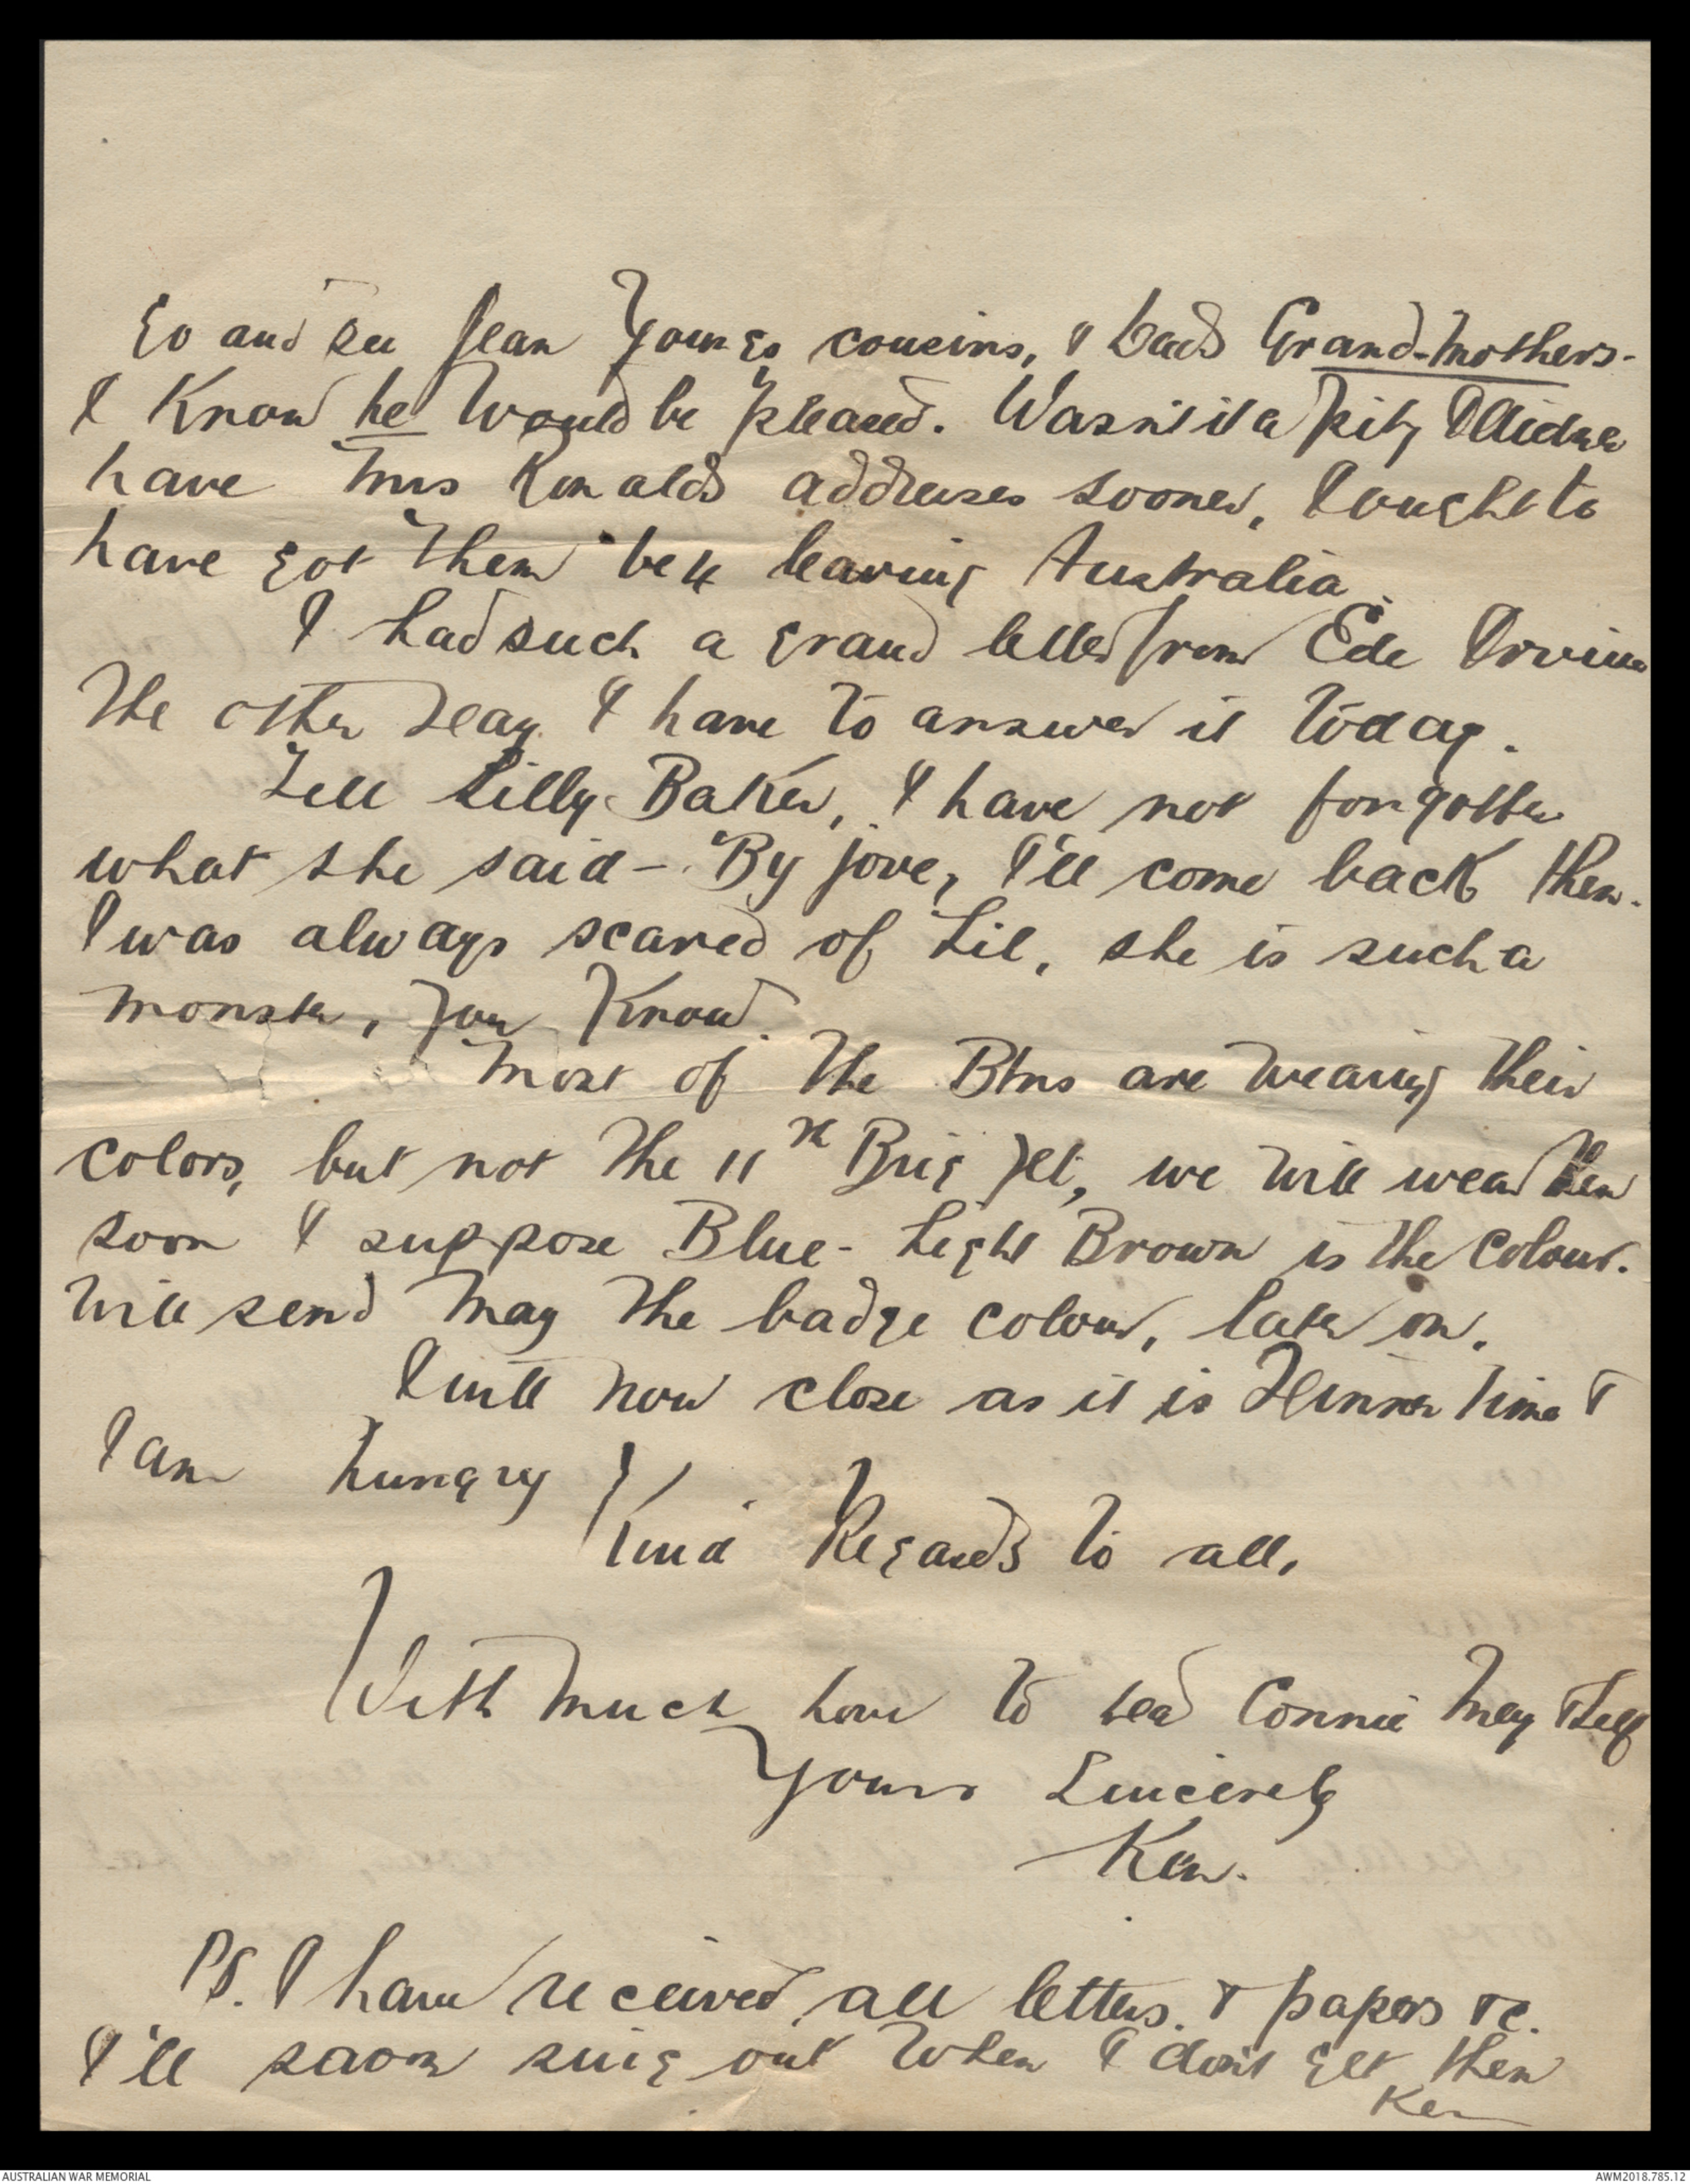 go and see Jean Youngs cousins, & Dads Grand-Mothers-
I Know he would be pleased. Wasn't it a pity I didn't
have Mrs Ronalds addresses sooner, I ought to
have got them before leaving Australia.
I had such a grand letter from Ede Irvine
the other day. I have to answer it today.
Tell Lilly Baker, I have not forgotten
what she said - By jove, I'll come back then.
I was always scared of Lil, she is such a
monster, you Know.
Most of the Btns are wearing their
colors, but not the 11th Brig yet, we will wear them
soon I suppose Blue - Light Brown is the colour.
Will send May the badge colour, later on.
I will now close as it is Dinner time &
I am hungry
Kind Regards to all,
With much love to Connie May & Self
Yours Sincerely
Ken.
PS. I have received all letters. & papers &c.
I'll soon sing out when I don't get them
Ken
AUSTRALIAN WAR MEMORIAL
AWM2018.785.12